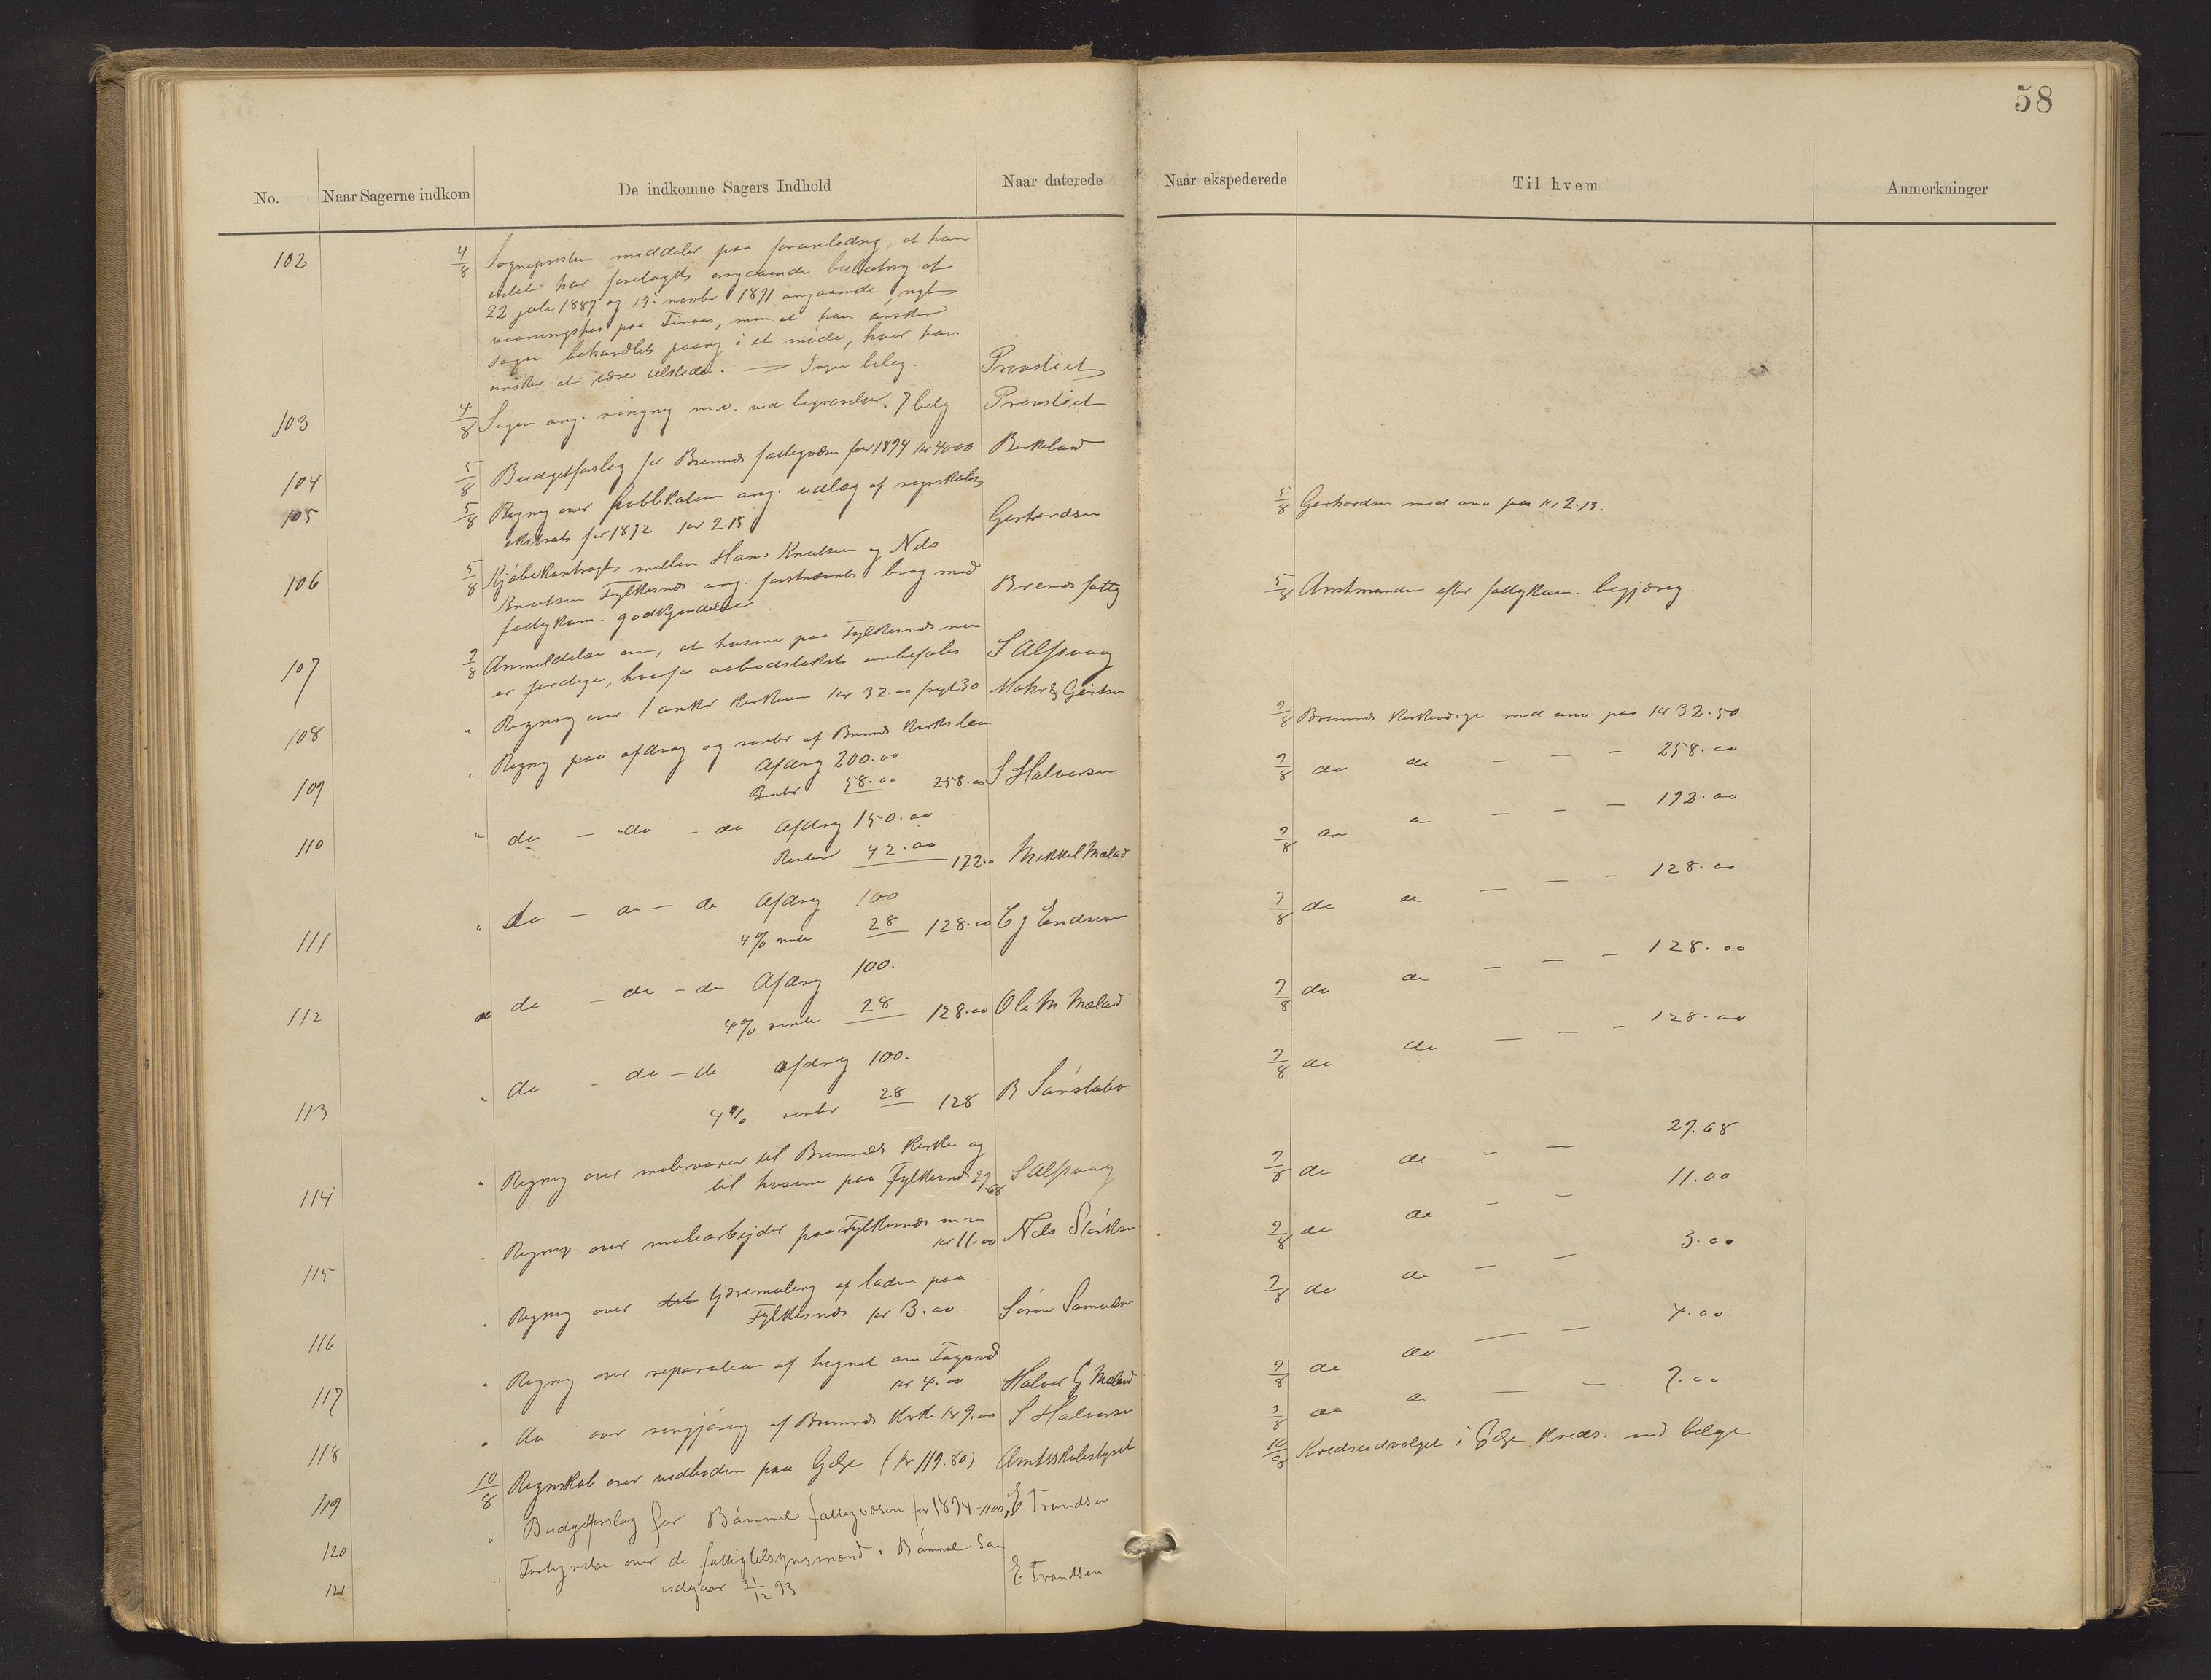 58
No. Naar Sagerne indkom De indkomne Sagers Indhold Naar daterede Naar ekspederede Til hvem Anmerkninger
102 4/8 Sognepresten meddeler paa foranledng, at han
intet har foretagets angaaende
22 juli 1887 og 19. novbr 1891 angaaende nyt
vaaningshus paa Finaas, men at han ønsker
sagen behandlet paany i et møde, hvor han
ønsker at være tilstede. — Ingen belag. Provstiet
103 4/8 Sagen ang. ringing m.v. ved begravelser. 7 belg Provstiet
104 5/8 Budgetforslag for Bremnes fattigvæsen for 1894 kr 4000 Berkeland
105 5/8 Regng over Publikation ang. udlæg af regnskabs-
ekstrakt for 1892 kr 2.15 Gerhardsen 5/8 Gerhardsen med anv paa kr 2.15.
106 5/8 Kjøbekontragt mellem Hans Knutsen og Nels
Knutsen Fylkesnes ang. førstnævntes brug med
fattigkom. godkjendelse Bremnes fattig 5/8 Amtmanden efter fattigkom. begjæring.
107 7/8 Anmeldelse om, at husene paa Fylkesnes nu
er færdige, hvorfor aabodstakst anbefales S Alfsvaag
108 " Regning over 1 anker kirkevin kr 32.00 fragt 30 Mohr & Gjertsen 7/8 Bremnes kirkeværge med anv. paa kr 32.50
109 " Regng paa afdrag og renter af Bremnes kirkelaan
Afdrag 200.00
Renter 58.00 258.00 S Halvorsen 7/8 do do — — 258.00
110 " do — do — do Afdrag 150.00
Renter 42.00 192.00 Mikkel Mæland 7/8 do do — — — 192.00
111 " do — do — do Afdrag 100
4% rente 28 128.00 C G Endresen 7/8 do do — — — 128.00
112 " do — do — do Afdrag 100.
4% rente 28 128.00 Ole M Mæland 7/8 do do — — — 128.00
113 " do — do — do afdrag 100.
4% renter 28 128 B Sørstabø 7/8 do do — — — 128.00
114 " Regng over malervarer til Bremnes kirke og
til husene paa Fylkesnes 27.68 S Alfsvaag 7/8 do do — — 27.68
115 " Regng over malearbeider paa Fylkesnes m m
kr 11.00 Nels Størksen 7/8 do do — — 11.00
116 " Regng over det tjæremaling af laden paa
Fylkesnes kr 3.00 Søren Samuelsen 7/8 do do — — 3.00
117 " Regng over reparation af hegnet om
kr 4.00 Halvor G Mæland 7/8 do do — — 4.00
118 " do over rengjøring af Bremnes kirke kr 7.00 S Halvorsen 7/8 do do — — 7.00
119 10/8 Regnskab over vedboden paa Golge (kr 119.80) Amtsskolestyret 10/8 Kredsudvalget i Golge kreds. med belage
120 " Budgetforslag for Bømmel fattigvæsen for 1894 - 1100 E Trondsen
121 " Fortegnelse over de fattigtilsynsmænd i Bømmel Som
udgaar 31/12 93 E. Trondsen